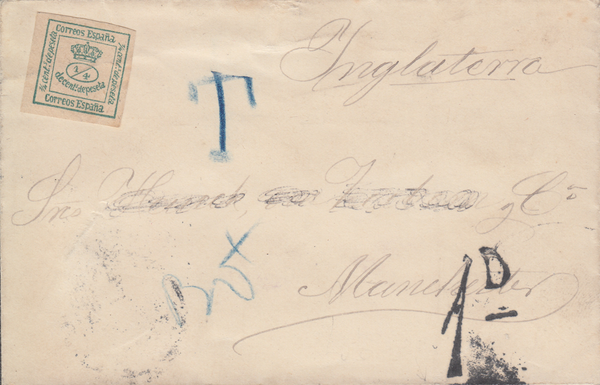 Correos España
¼ cent. de peseta
¼ cent. de peseta
1/4
de cent. de peseta
Correos España
Inglaterra
T
y Cº
Manchester
1D